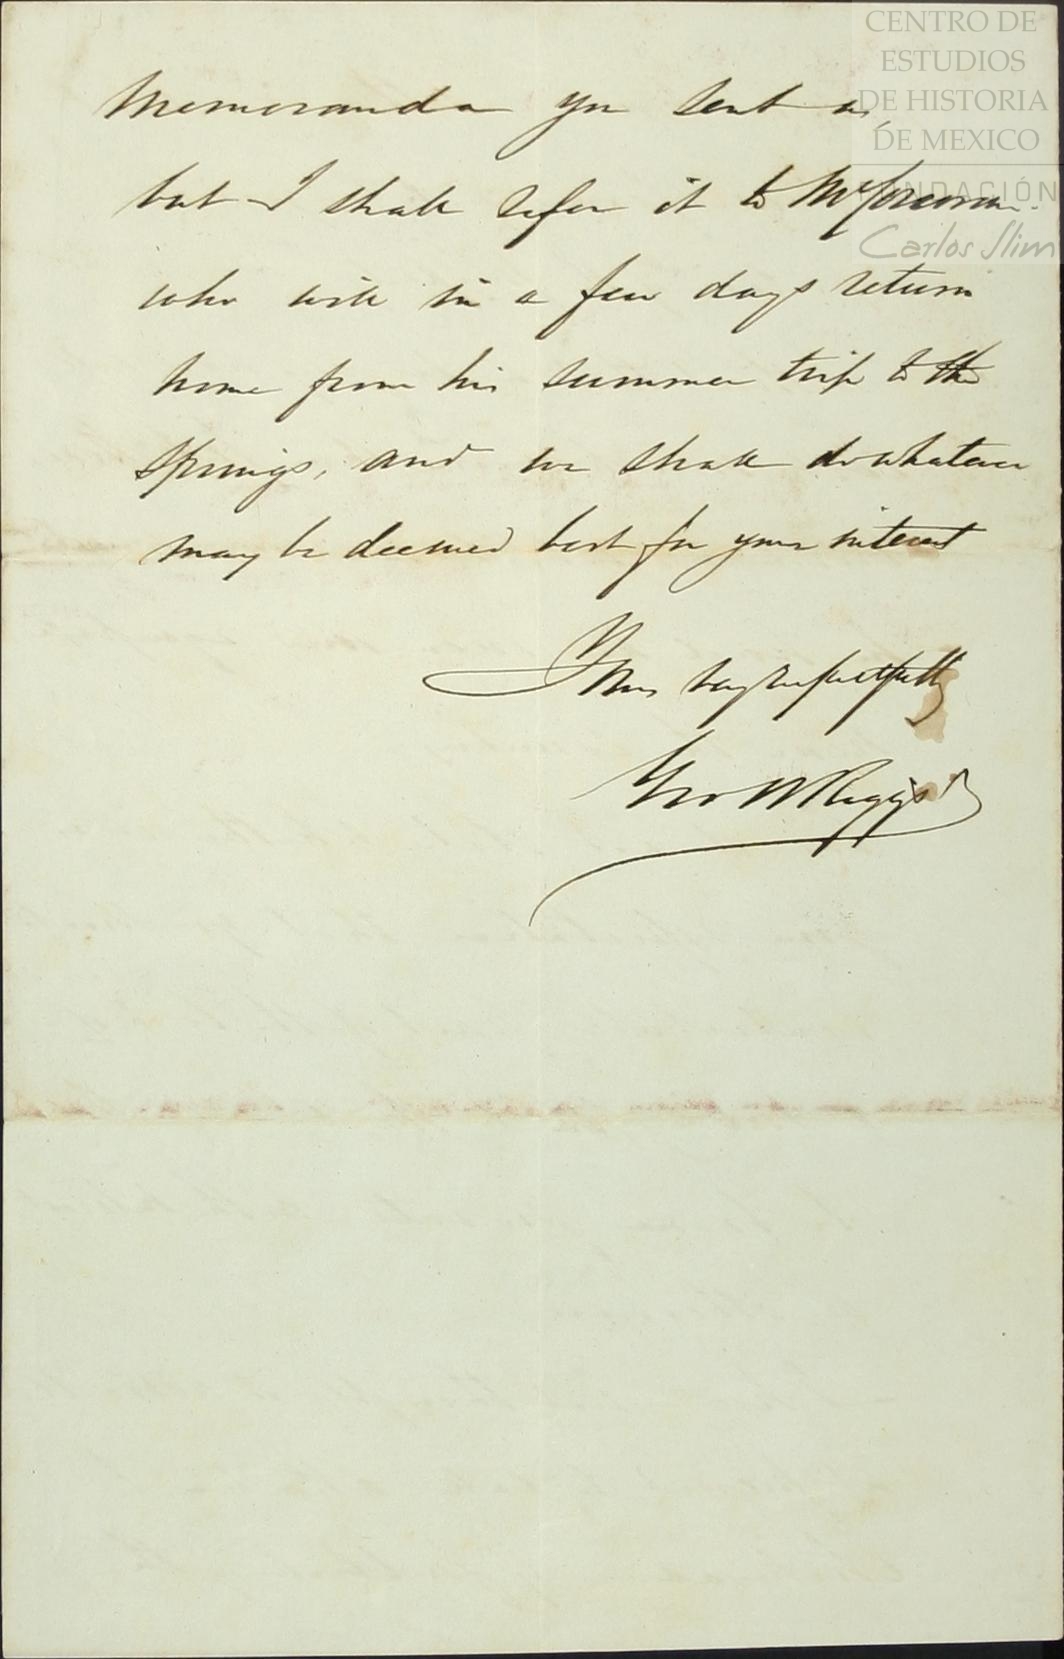 CENTRO DE
ESTUDIOS
DE HISTORIA
DE MEXICO
FUNDACIÓN
Carlos Slim
Memoranda you sent us,
but I shall refer it to Mr Corcoran
who will in a few days return
home from his summer trip to the
Springs, and we shall do whatever
may be deemed best for your interest
Yours very respectfully
Geo W Riggs